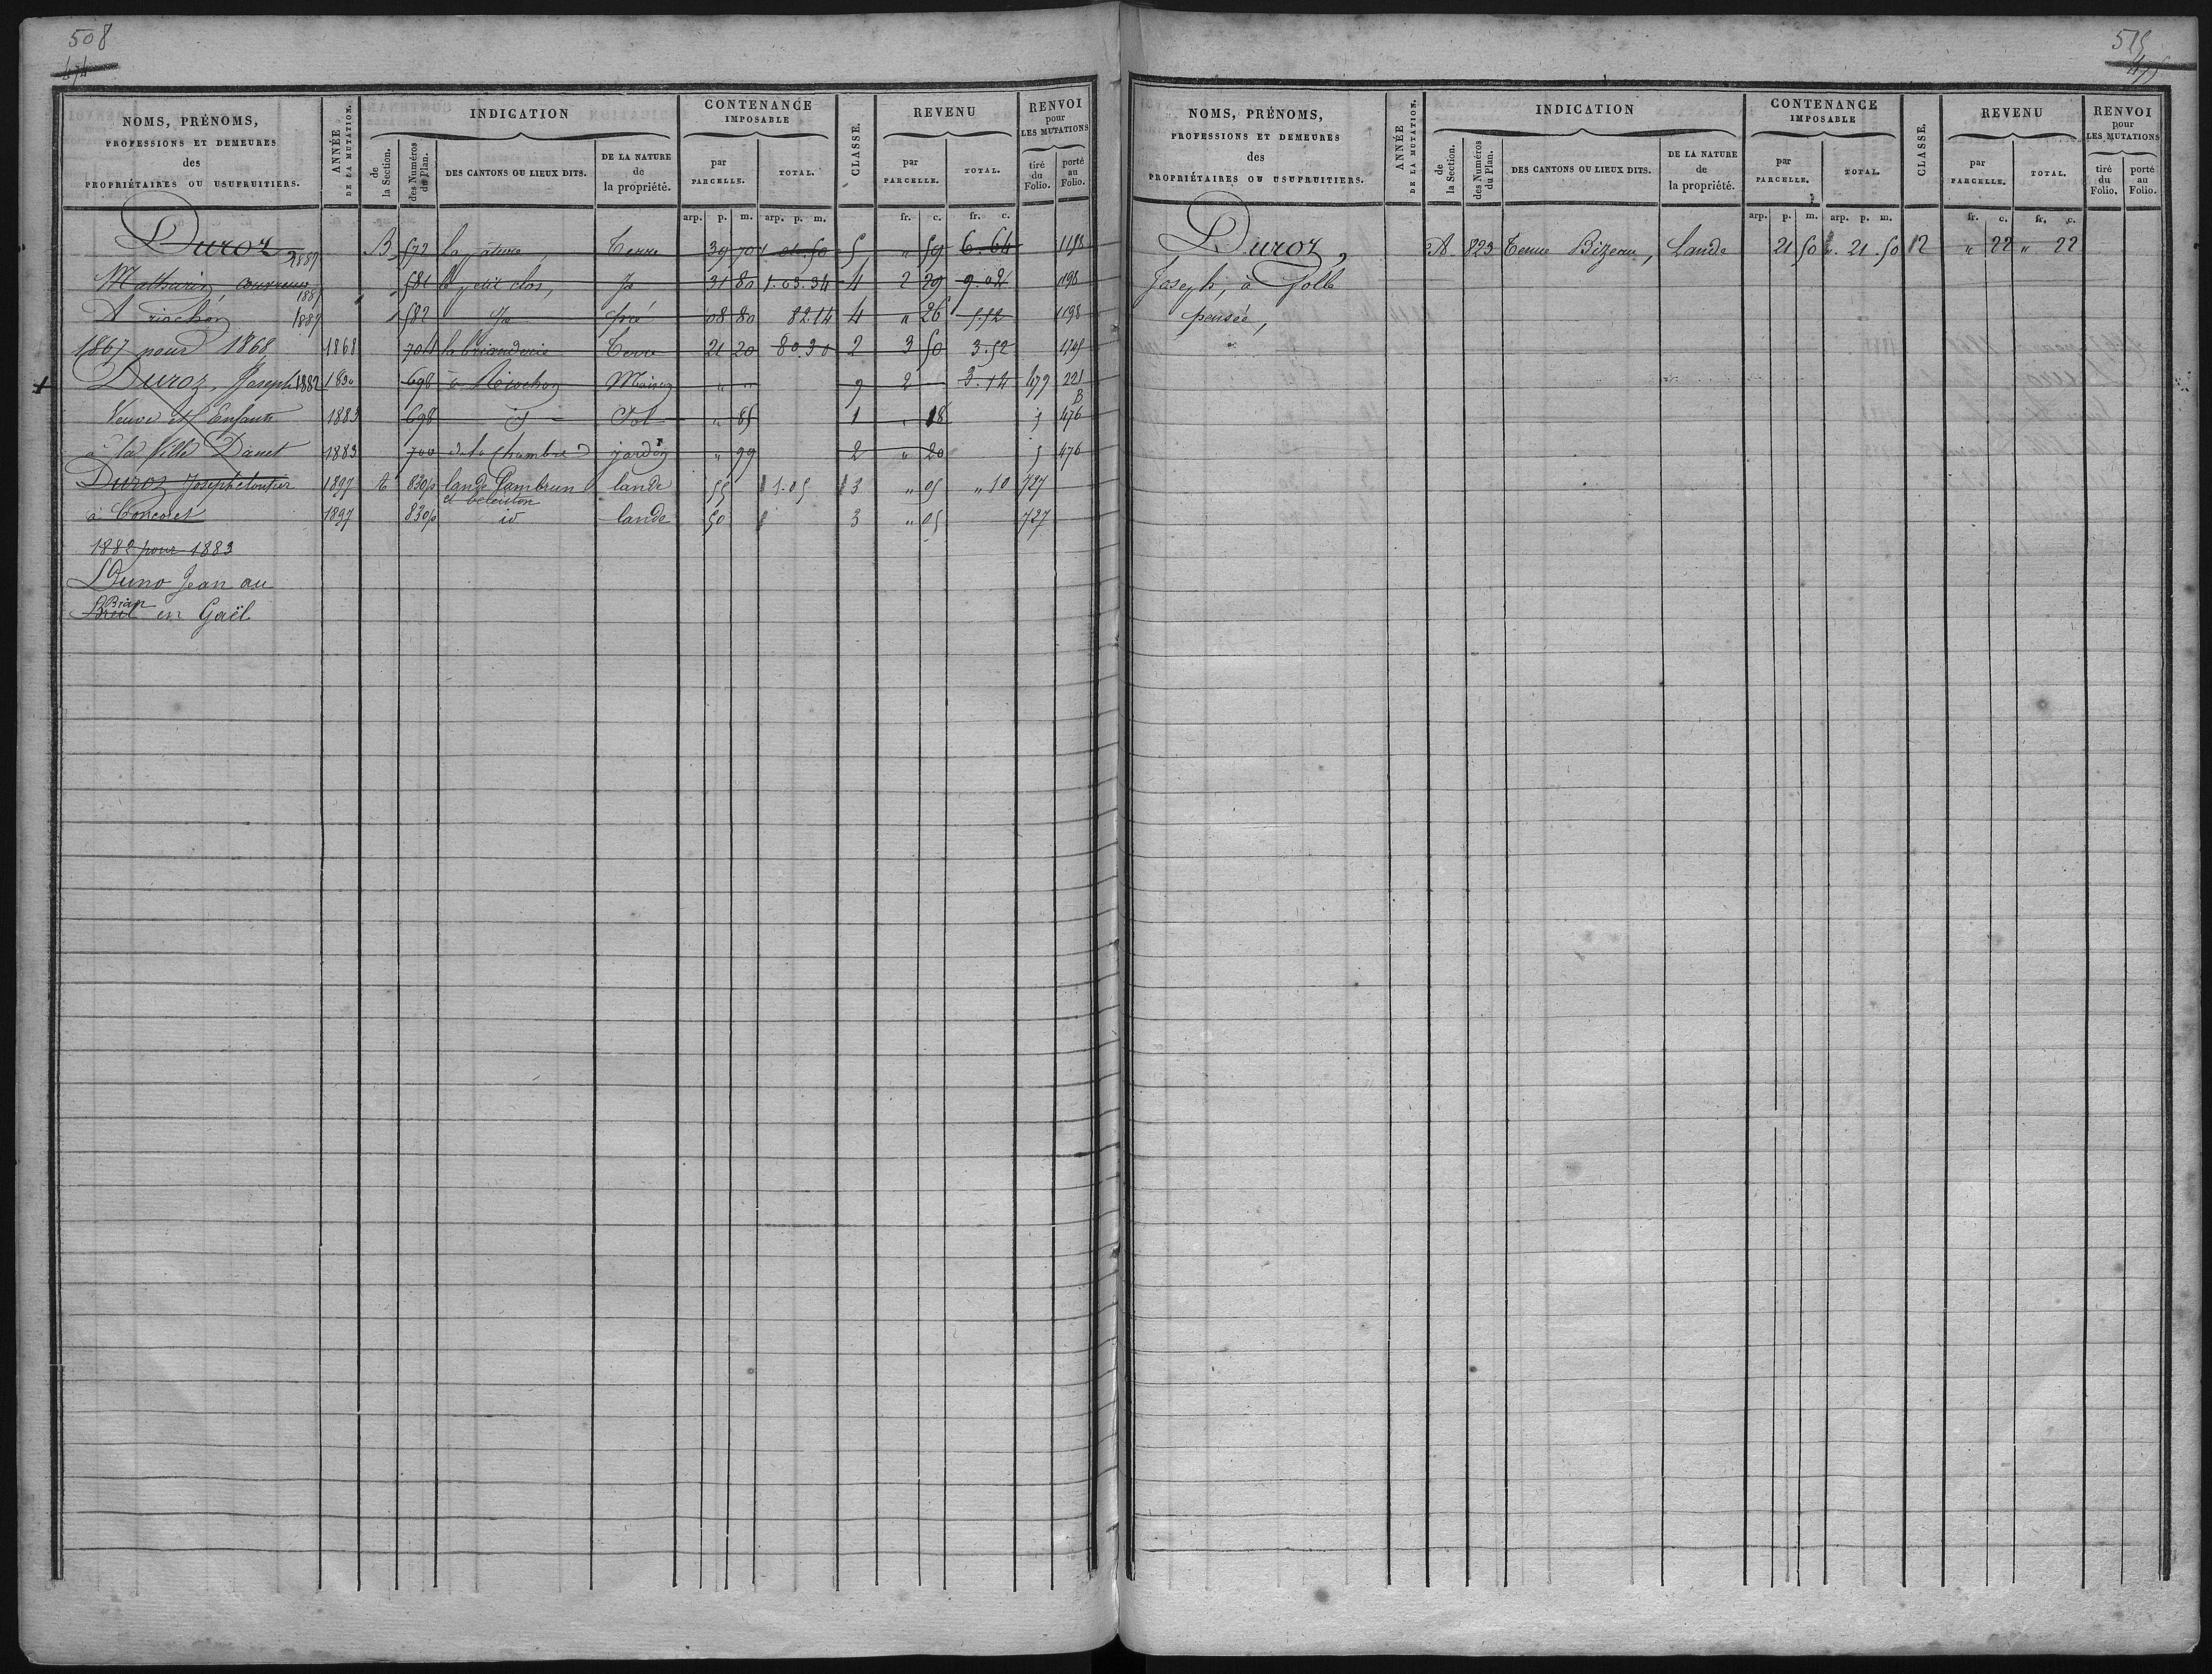 508
474
NOMS, PRÉNOMS,
PROFESSIONS ET DEMEURES
des
PROPRIÉTAIRES OU USUFRUITIERS.
ANNÉE
DE LA MUTATION.
INDICATION
de
la Section.
des Numéros
du Plan.
DES CANTONS OU LIEUX DITS.
DE LA NATURE
de
la propriété.
CONTENANCE
IMPOSABLE
par
PARCELLE.
TOTAL.
CLASSE.
REVENU
par
PARCELLE.
TOTAL.
RENVOI
pour
LES MUTATIONS
tiré
du
Folio.
porté
au
Folio.
arp. p. m. arp. p. m. fr. c. fr. c.
Duroz 1887 B 572 la pâture, Terre 39 70 5 " 59 6.64 1198
Mathurin, couvreur 1887 581 le petit clos, Jd 31 80 1.03.34 4 2 29 9.02 1198
A riochon 1887 582 Jd pré 08 80 82.14 4 " 26 5.52 1198
1867 pour 1868 1868 704 la briauderie Terre 21 20 80.30 2 3 50 3.52
Duroz, Joseph 1882 1830 698 Maison " " 9 2 3.14 479 221
Veuve et Enfants 1883 698 Jd Sol " 85 1 " 18 5 476
à la Ville Danet 1883 700 de la Chambre jardin " 99 2 " 20 5 476
Duroz Joseph cloutier 1897 A 830p lande Pambrun lande 55 1.05 3 " 05 " 10 727
à Concoret 1897 830p id lande 50 3 " 05 727
1882 pour 1883
Duno Jean au
Breil Brian en Gaël
515
475
NOMS, PRÉNOMS,
PROFESSIONS ET DEMEURES
des
PROPRIÉTAIRES OU USUFRUITIERS.
ANNÉE
DE LA MUTATION.
INDICATION
de
la Section.
des Numéros
du Plan.
DES CANTONS OU LIEUX DITS.
DE LA NATURE
de
la propriété.
CONTENANCE
IMPOSABLE
par
PARCELLE.
TOTAL.
CLASSE.
REVENU
par
PARCELLE.
TOTAL.
RENVOI
pour
LES MUTATIONS
tiré
du
Folio.
porté
au
Folio.
arp. p. m. arp. p. m. fr. c. fr. c.
Duroz, A. 823 Tenue Bizeau, Lande 21 50 ". 21. 50 2 " 22 " 22
Joseph, à folle
pensée,